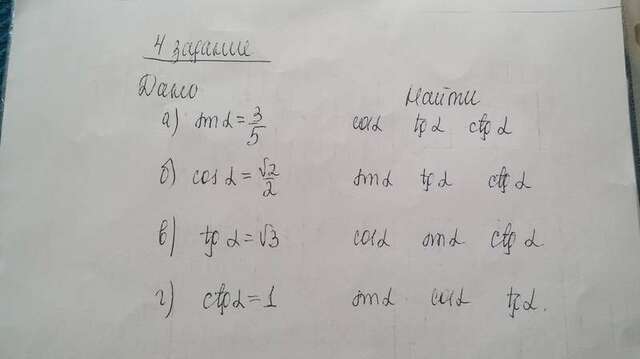 4 задание
Дано Найти
а) sin α = 3/5 cos α tg α ctg α
б) cos α = √2/2 sin α tg α ctg α
в) tg α = √3 cos α sin α ctg α
г) ctg α = 1 sin α cos α tg α.